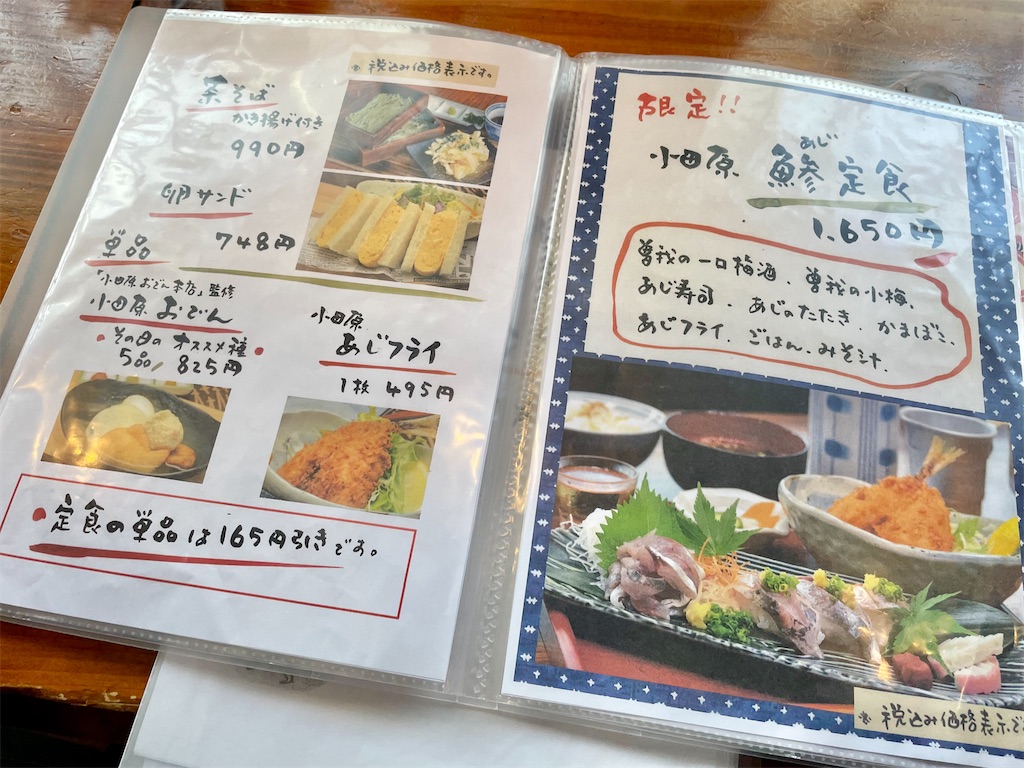 ※ 税込み価格表示です。
茶そば
かき揚げ付き
990円
卵サンド
748円
単品
「小田原おでん本店」監修
小田原おでん
・その日のオススメ種・
5品/825円
小田原
あじフライ
1枚 495円
・定食の単品は165円引きです。
限定!!
あじ
小田原 鯵定食
1,650円
曽我の一口梅酒、曽我の小梅、
あじ寿司、あじのたたき、かまぼこ、
あじフライ、ごはん、みそ汁、
※ 税込み価格表示で